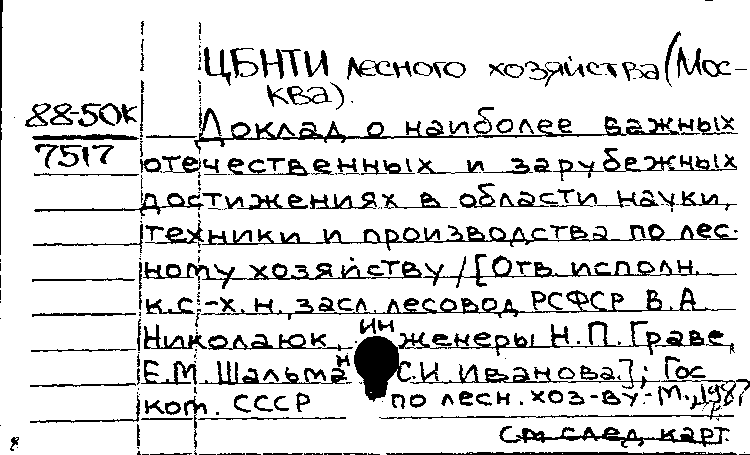 ЦБНТИ лесного хозяйства (Мос-
ква).
88-50К
7517
Доклад о наиболее важных
отечественных и зарубежных
достижениях в области науки,
техники и производства по лес-
ному хозяйству / [Отв. исполн.
к.с.-х.н., засл. лесовод РСФСР В.А.
Николаюк, инженеры Н.П. Граве,
Е.М. Шальман С.И. Иванова]; Гос
ком. СССР по лесн. хоз-ву.-М., 1987
См след. карт.